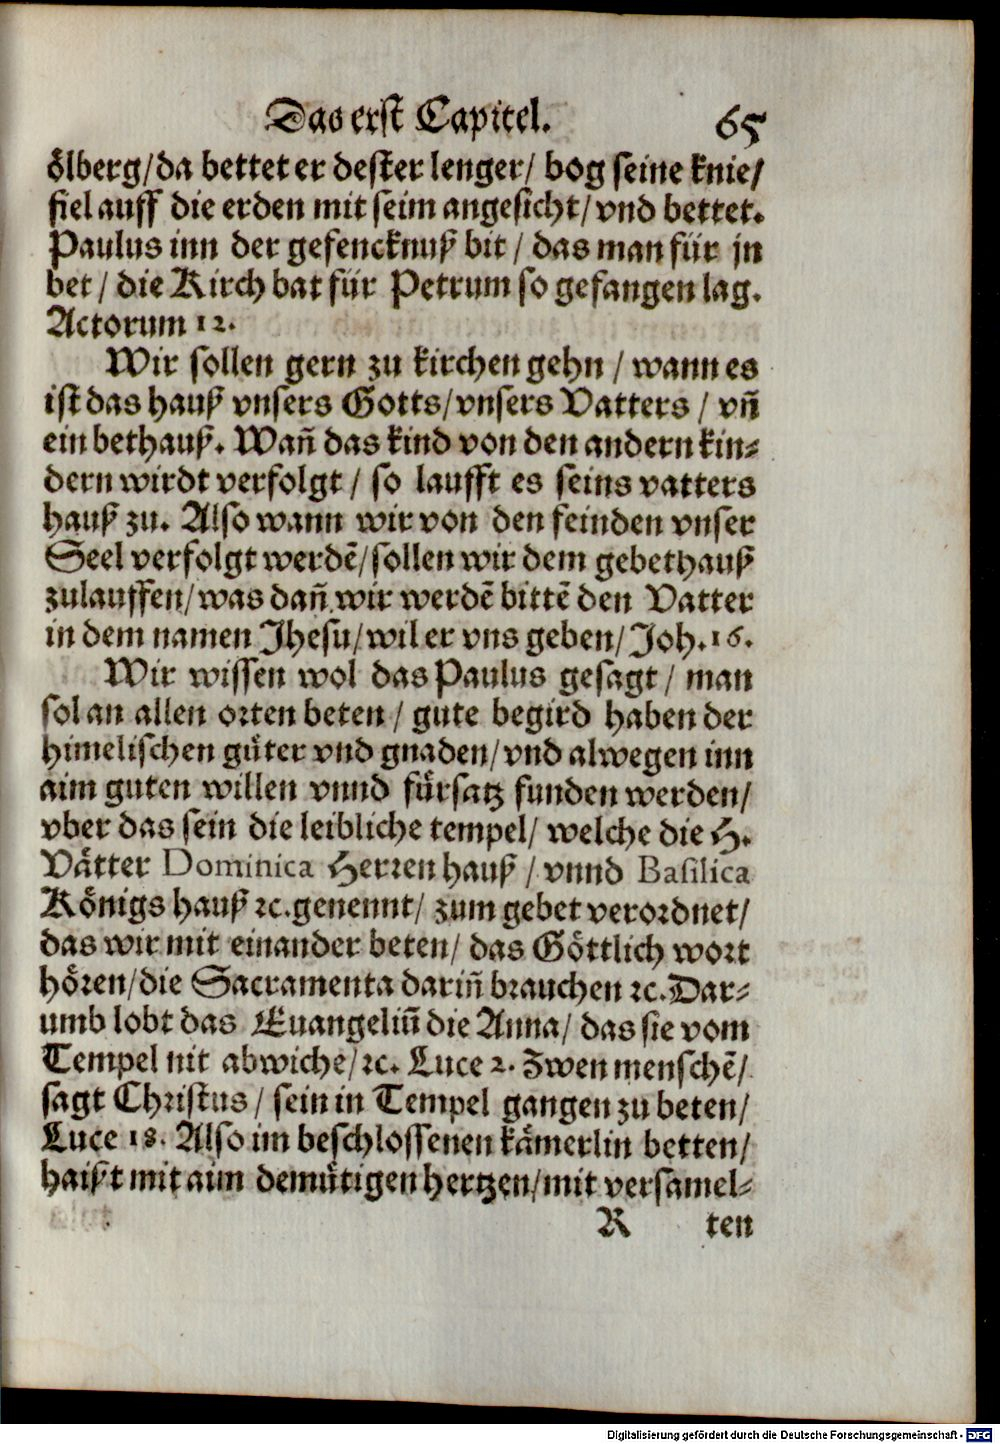 Das erst Capitel. 65
ölberg/da bettet er dester lenger/ bog seine knie/
fiel auff die erden mit seim angesicht/ vnd bettet.
Paulus inn der gefencknuß bit / das man für jn
bet / die Kirch bat für Petrum so gefangen lag.
Actorum 12.
Wir sollen gern zu kirchen gehn / wann es
ist das hauß vnsers Gotts/vnsers Vatters / vñ
ein bethauß. Wañ das kind von den andern kin-
dern wirdt verfolgt / so laufft es seins vatters
hauß zu. Also wann wir von den feinden vnser
Seel verfolgt werdẽ/sollen wir dem gebethauß
zulauffen/was dañ wir werdẽ bittẽ den Vatter
in dem namen Jhesu/wil er vns geben/Joh.16.
Wir wissen wol das Paulus gesagt / man
sol an allen orten beten / gute begird haben der
himelischen güter vnd gnaden/vnd alwegen inn
aim guten willen vnnd fürsatz funden werden/
vber das sein die leibliche tempel/ welche die H.
Vätter Dominica Herren hauß / vnnd Basilica
Königs hauß ꝛc.genennt/ zum gebet verordnet/
das wir mit einander beten/ das Göttlich wort
hören/die Sacramenta dariñ brauchen ꝛc.Dar-
umb lobt das Euangeliũ die Anna/ das sie vom
Tempel nit abwiche/ꝛc. Luce 2. Zwen menschẽ/
sagt Christus / sein in Tempel gangen zu beten/
Luce 18. Also im beschlossenen kämerlin betten/
haißt mit aim demütigen hertzen/mit versamel-
R ten
Digitalisierung gefördert durch die Deutsche Forschungsgemeinschaft - DFG